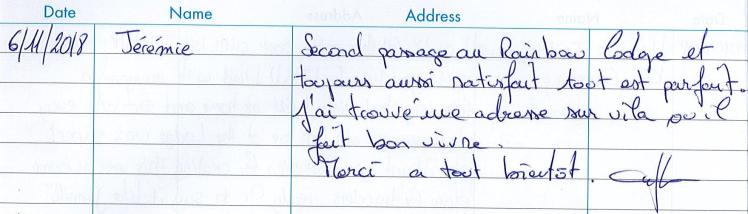 Date Name Address
6/11/2018 Jérémie Second passage au Rainbow lodge et
toujours aussi satisfait tout est parfait.
J'ai trouvé une adresse sur vila ou il
fait bon vivre.
Merci a tout bientôt.